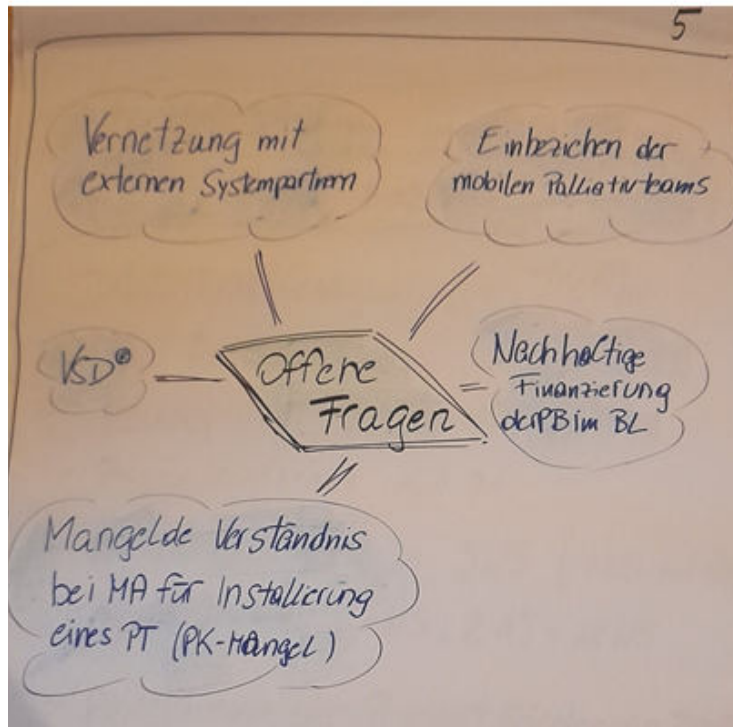 5
Vernetzung mit
externen Systempartnern
Einbeziehen der
mobilen Palliativteams
VSD®
Offene
Fragen
Nachhaltige
Finanzierung
der PB im BL
Mangelde Verständnis
bei MA für Installierung
eines PT (PK-Mangel)